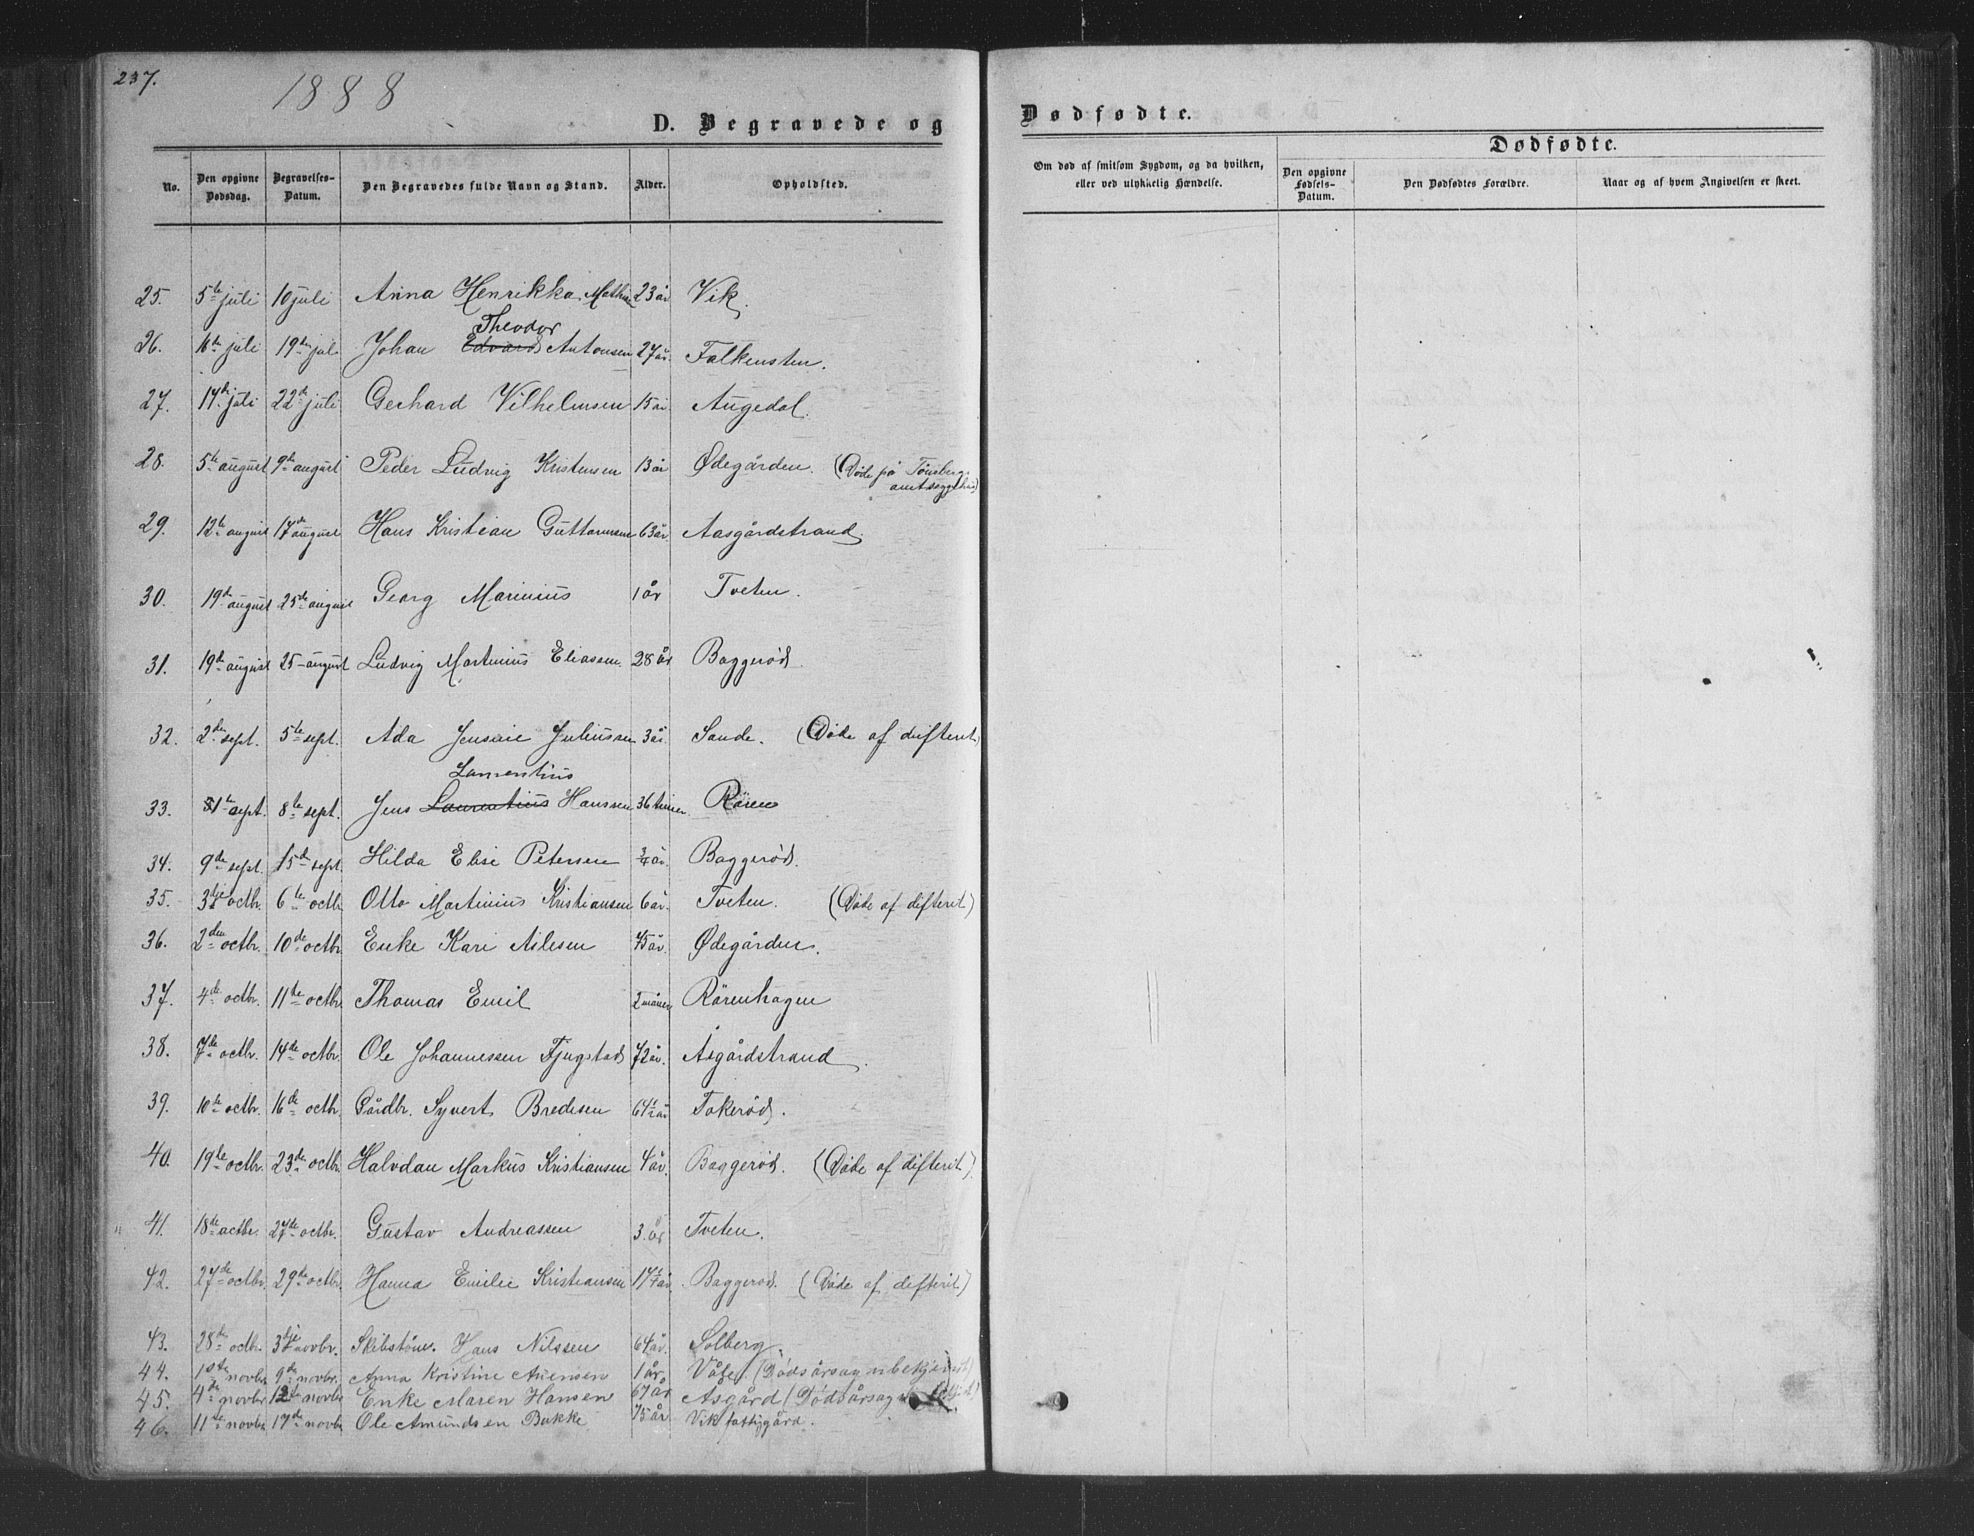 237.
1888
D. Begravede og
Dødfødte.
No. Den opgivne Dødsdag. Begravelses-Datum. Den Begravedes fulde Navn og Stand. Alder. Opholdsted.
Om død af smitsom Sygdom, og da hvilken, eller ved ulykkelig Hændelse.
Dødfødte.
Den opgivne Fødsels-Datum. Den Dødfødtes Forældre. Naar og af hvem Angivelsen er skeet.
25. 5te juli 10 juli Anna Henrikka 23 år Vik.
Theodor
26. 16de juli 19de juli Johan Edvard Antonsen 27 år Falkensten.
27. 14de juli 22de juli Gerhard Vilhelmsen 15 år Augedal.
28. 5te august 9de august Peder Ludvig Kristensen 13 år Ødegården. (Døde på Tønsberg
29. 12te august 17de august Hans Kristian Guttormsen 63 år Aasgårdstrand.
30. 19de august 25de august Georg Marinius 1 år Tveten.
31. 19de august 25-august Ludvig Martinius Eliassen 28 år Baggerød.
32. 2den sept. 5te sept. Ada Jensine Juliussen 3 år Sande. (Døde af difterit)
Lamentius
33. sept. 8te sept. Jens Laurentius Hanssen 36 timer. Røren
34. 9de sept. 15de sept. Hilda Elise Petersen 3/4 år. Baggerød.
35. 3dje octbr. 6te octbr. Otto Martinius Kristiansen 6 år. Tveten. (Døde af difterit)
36. 2den octbr. 10de octbr. Enke Kari Aslesen år. Ødegården.
37. 4de octbr. 11te octbr. Thomas Emil 2 måner Rørenhagen
38. 7de octbr. 14de octbr. Ole Johannessen Fjugstad 72 år. Åsgårdstrand
39. 10de octbr. 16de octbr. Gårdbr. Syvert Bredesen 64½ år Tokerød.
40. 19te octbr. 23de octbr. Halvdan Markus Kristiansen 4 år. Baggerød. (Døde af difterit)
41. 18de octbr. 27de octbr. Gustav Andreassen 3 år Tveten.
42. 27de octbr. 29de octbr. Hanna Emilie Kristiansen år Baggerød. (Døde af difterit)
43. 28de octbr. 3dje novbr. Skibstøm. Hans Nilssen 64 år. Solberg.
44. 1ste novbr 9de novbr. Anna Kristine 1 år. Våle. (Dødsårsag ubekjendt)
45. 4de novbr 12te novbr Enke Maren Hansen 67 år Åsgård (Dødsårsag
46. 11te novbr 17de novbr Ole Amundsen Bakke 75 år Vik fattiggård.